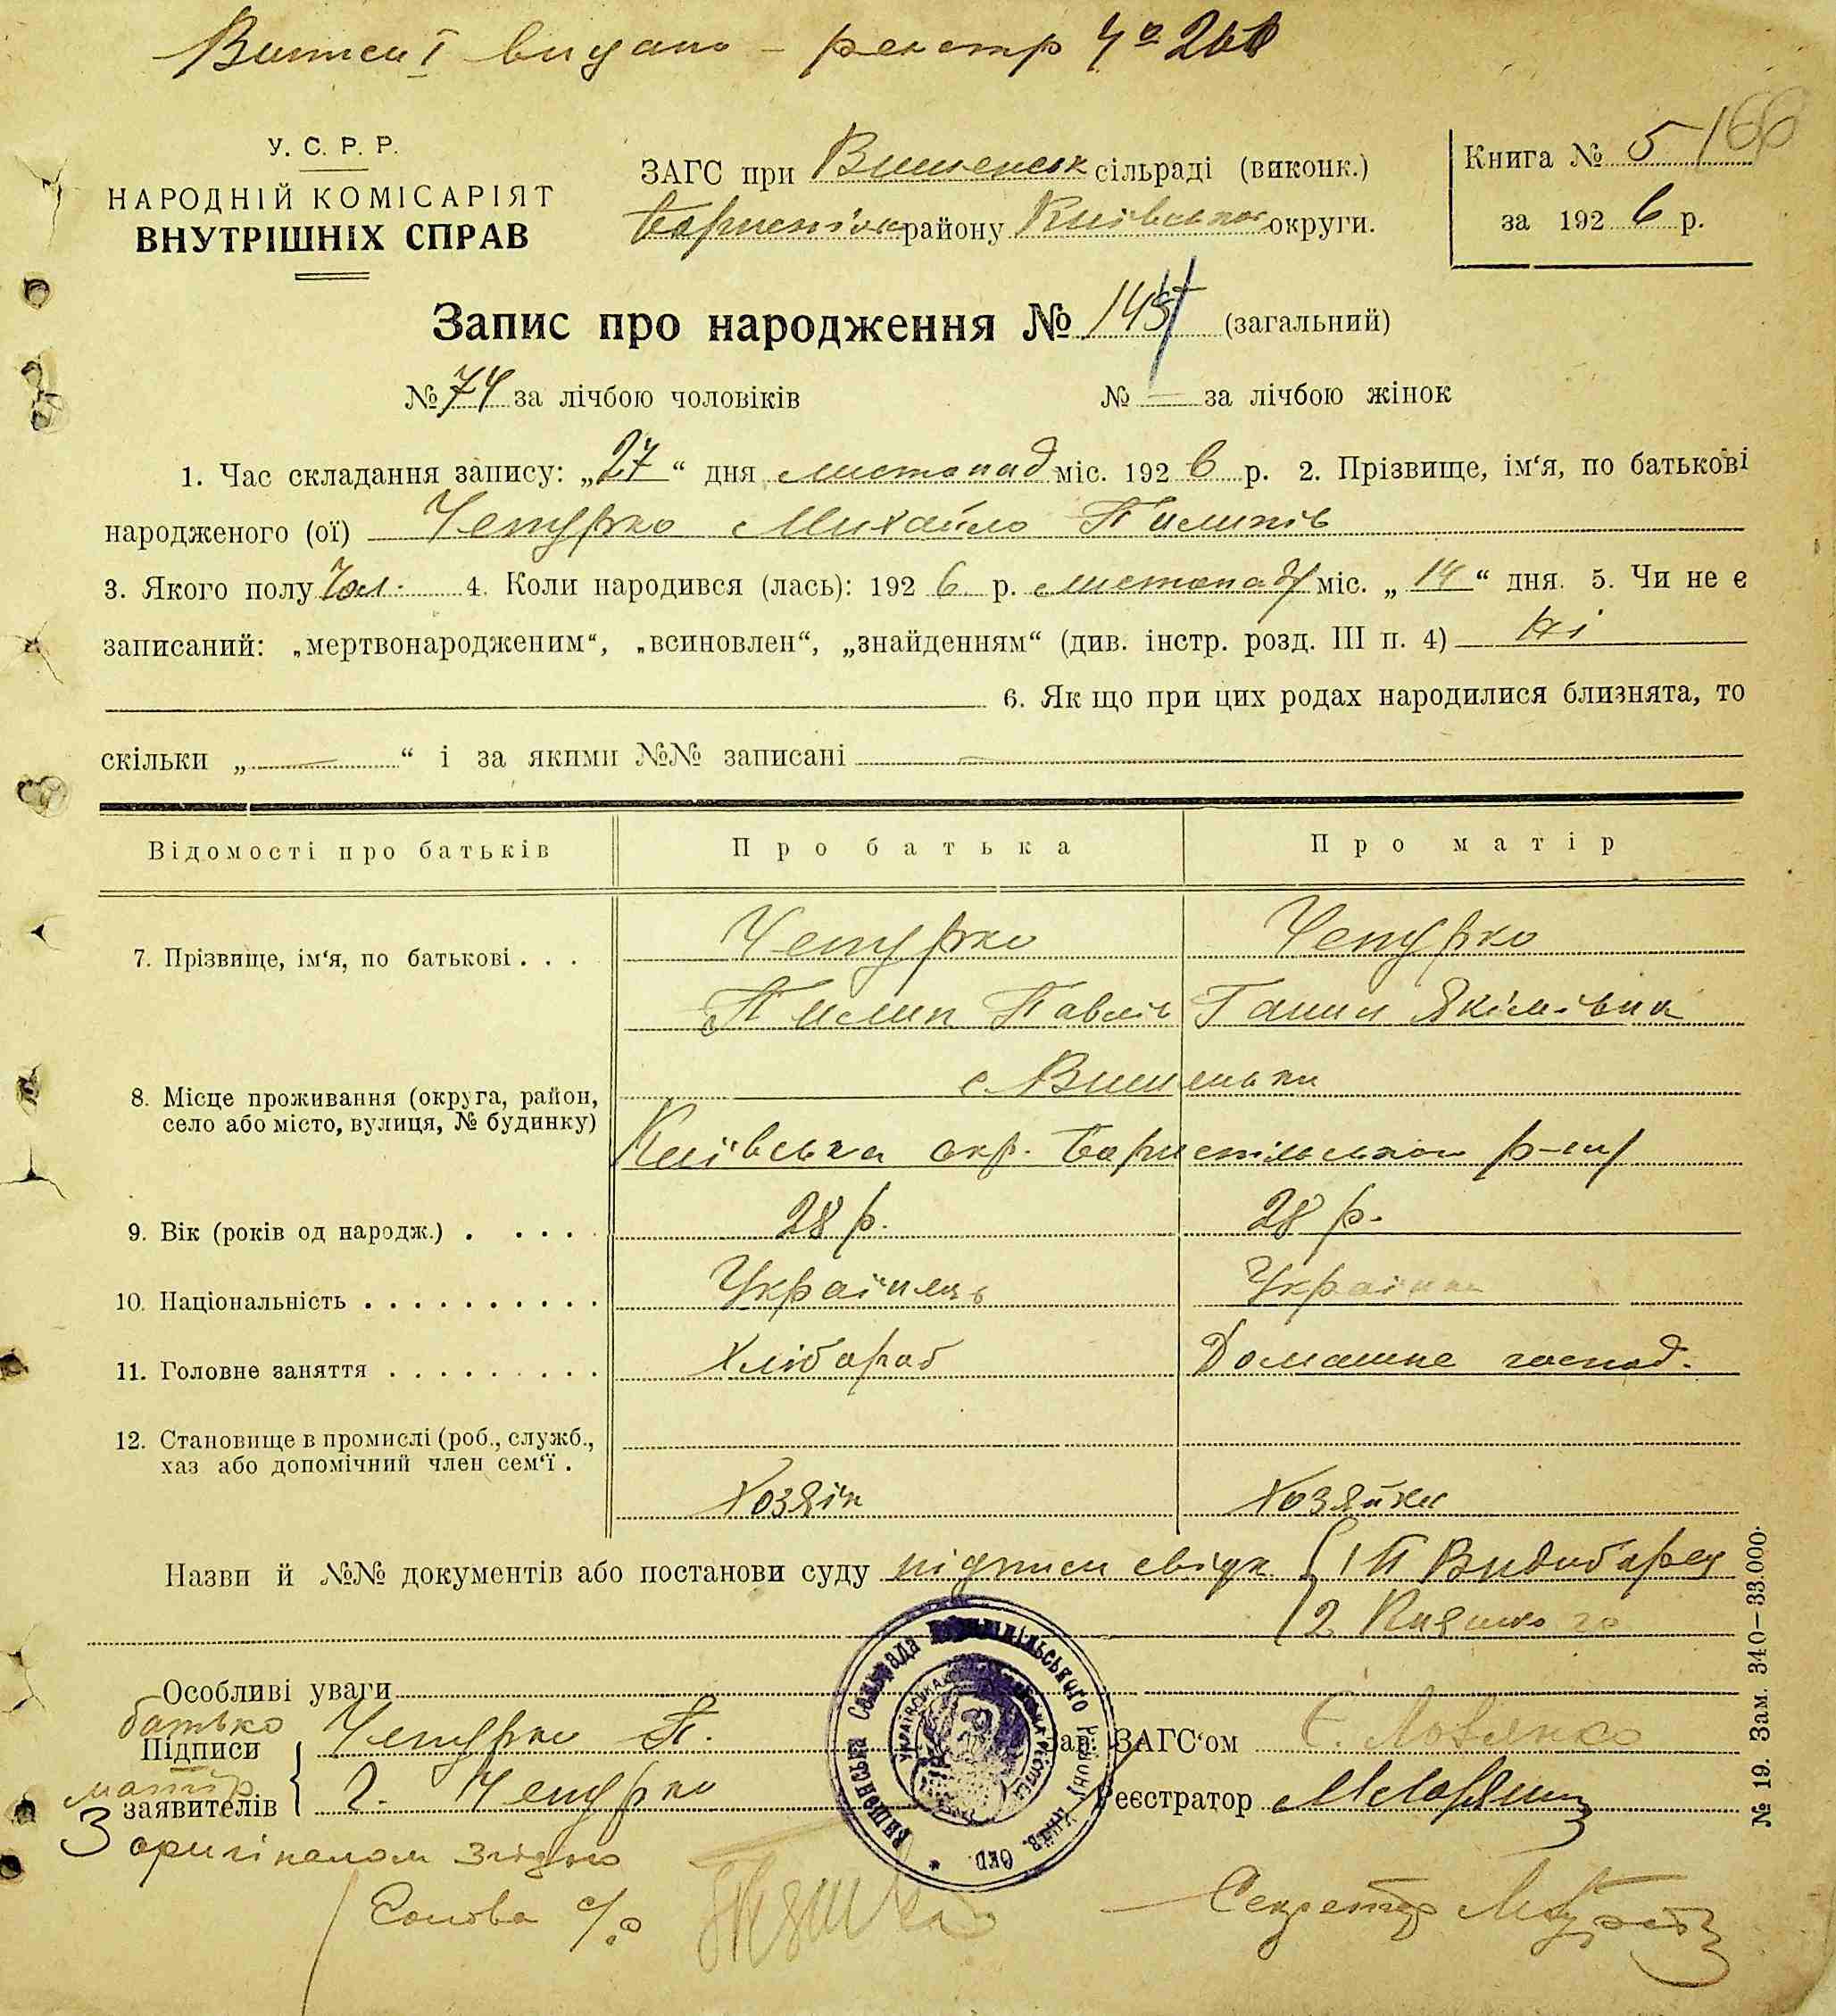 видано – реєстр № 268
У. С. Р. Р.
НАРОДНІЙ КОМІСАРІЯТ
ВНУТРІШНІХ СПРАВ
ЗАГС при Вишенськ сільраді (виконк.)
району Київської округи.
Книга № 5
166
за 1926 р.
Запис про народження № (загальний)
№ 74 за лічбою чоловіків № — за лічбою жінок
1. Час складання запису: „27“ дня листопад міс. 1926 р. 2. Прізвище, ім‘я, по батькові
народженого (ої) Чепурко Михайло Пилипів
3. Якого полу Чол. 4. Коли народився (лась): 1926 р. листопаду міс. „14“ дня. 5. Чи не є
записаний: „мертвонародженим“, „всиновлен“, „знайденням“ (див. інстр. розд. III п. 4) Ні
6. Як що при цих родах народилися близнята, то
скільки „—“ і за якими №№ записані —
Відомості про батьків Про батька Про матір
7. Прізвище, ім‘я, по батькові . . . Чепурко Чепурко
Пилип Павлів Ганна Якімівна
с Вишеньки
8. Місце проживання (округа, район,
село або місто, вулиця, № будинку)
Київська окр. Бориспільського р-ну
9. Вік (років од народж.) . . . . . 28 р. 28 р.
10. Національність . . . . . . . . . . . Українець Українка
11. Головне заняття . . . . . . . . . Хлібороб Домашнє господ.
12. Становище в промислі (роб., служб.,
хаз або допомічний член сем‘ї .
Хозяін Хозяйка
Назви й №№ документів або постанови суду підписи свідк { 1 П
2.
Особливі уваги
батько
Підписи Чепурко П. Зав. ЗАГС‘ом
матір
заявителів Г. Чепурко Реєстратор
З оригіналом згідно
Голова с/р Секретар
Вишенська Сільрада Бориспільського Району Київ. Окр.
№ 19. Зам. 340—33.000.